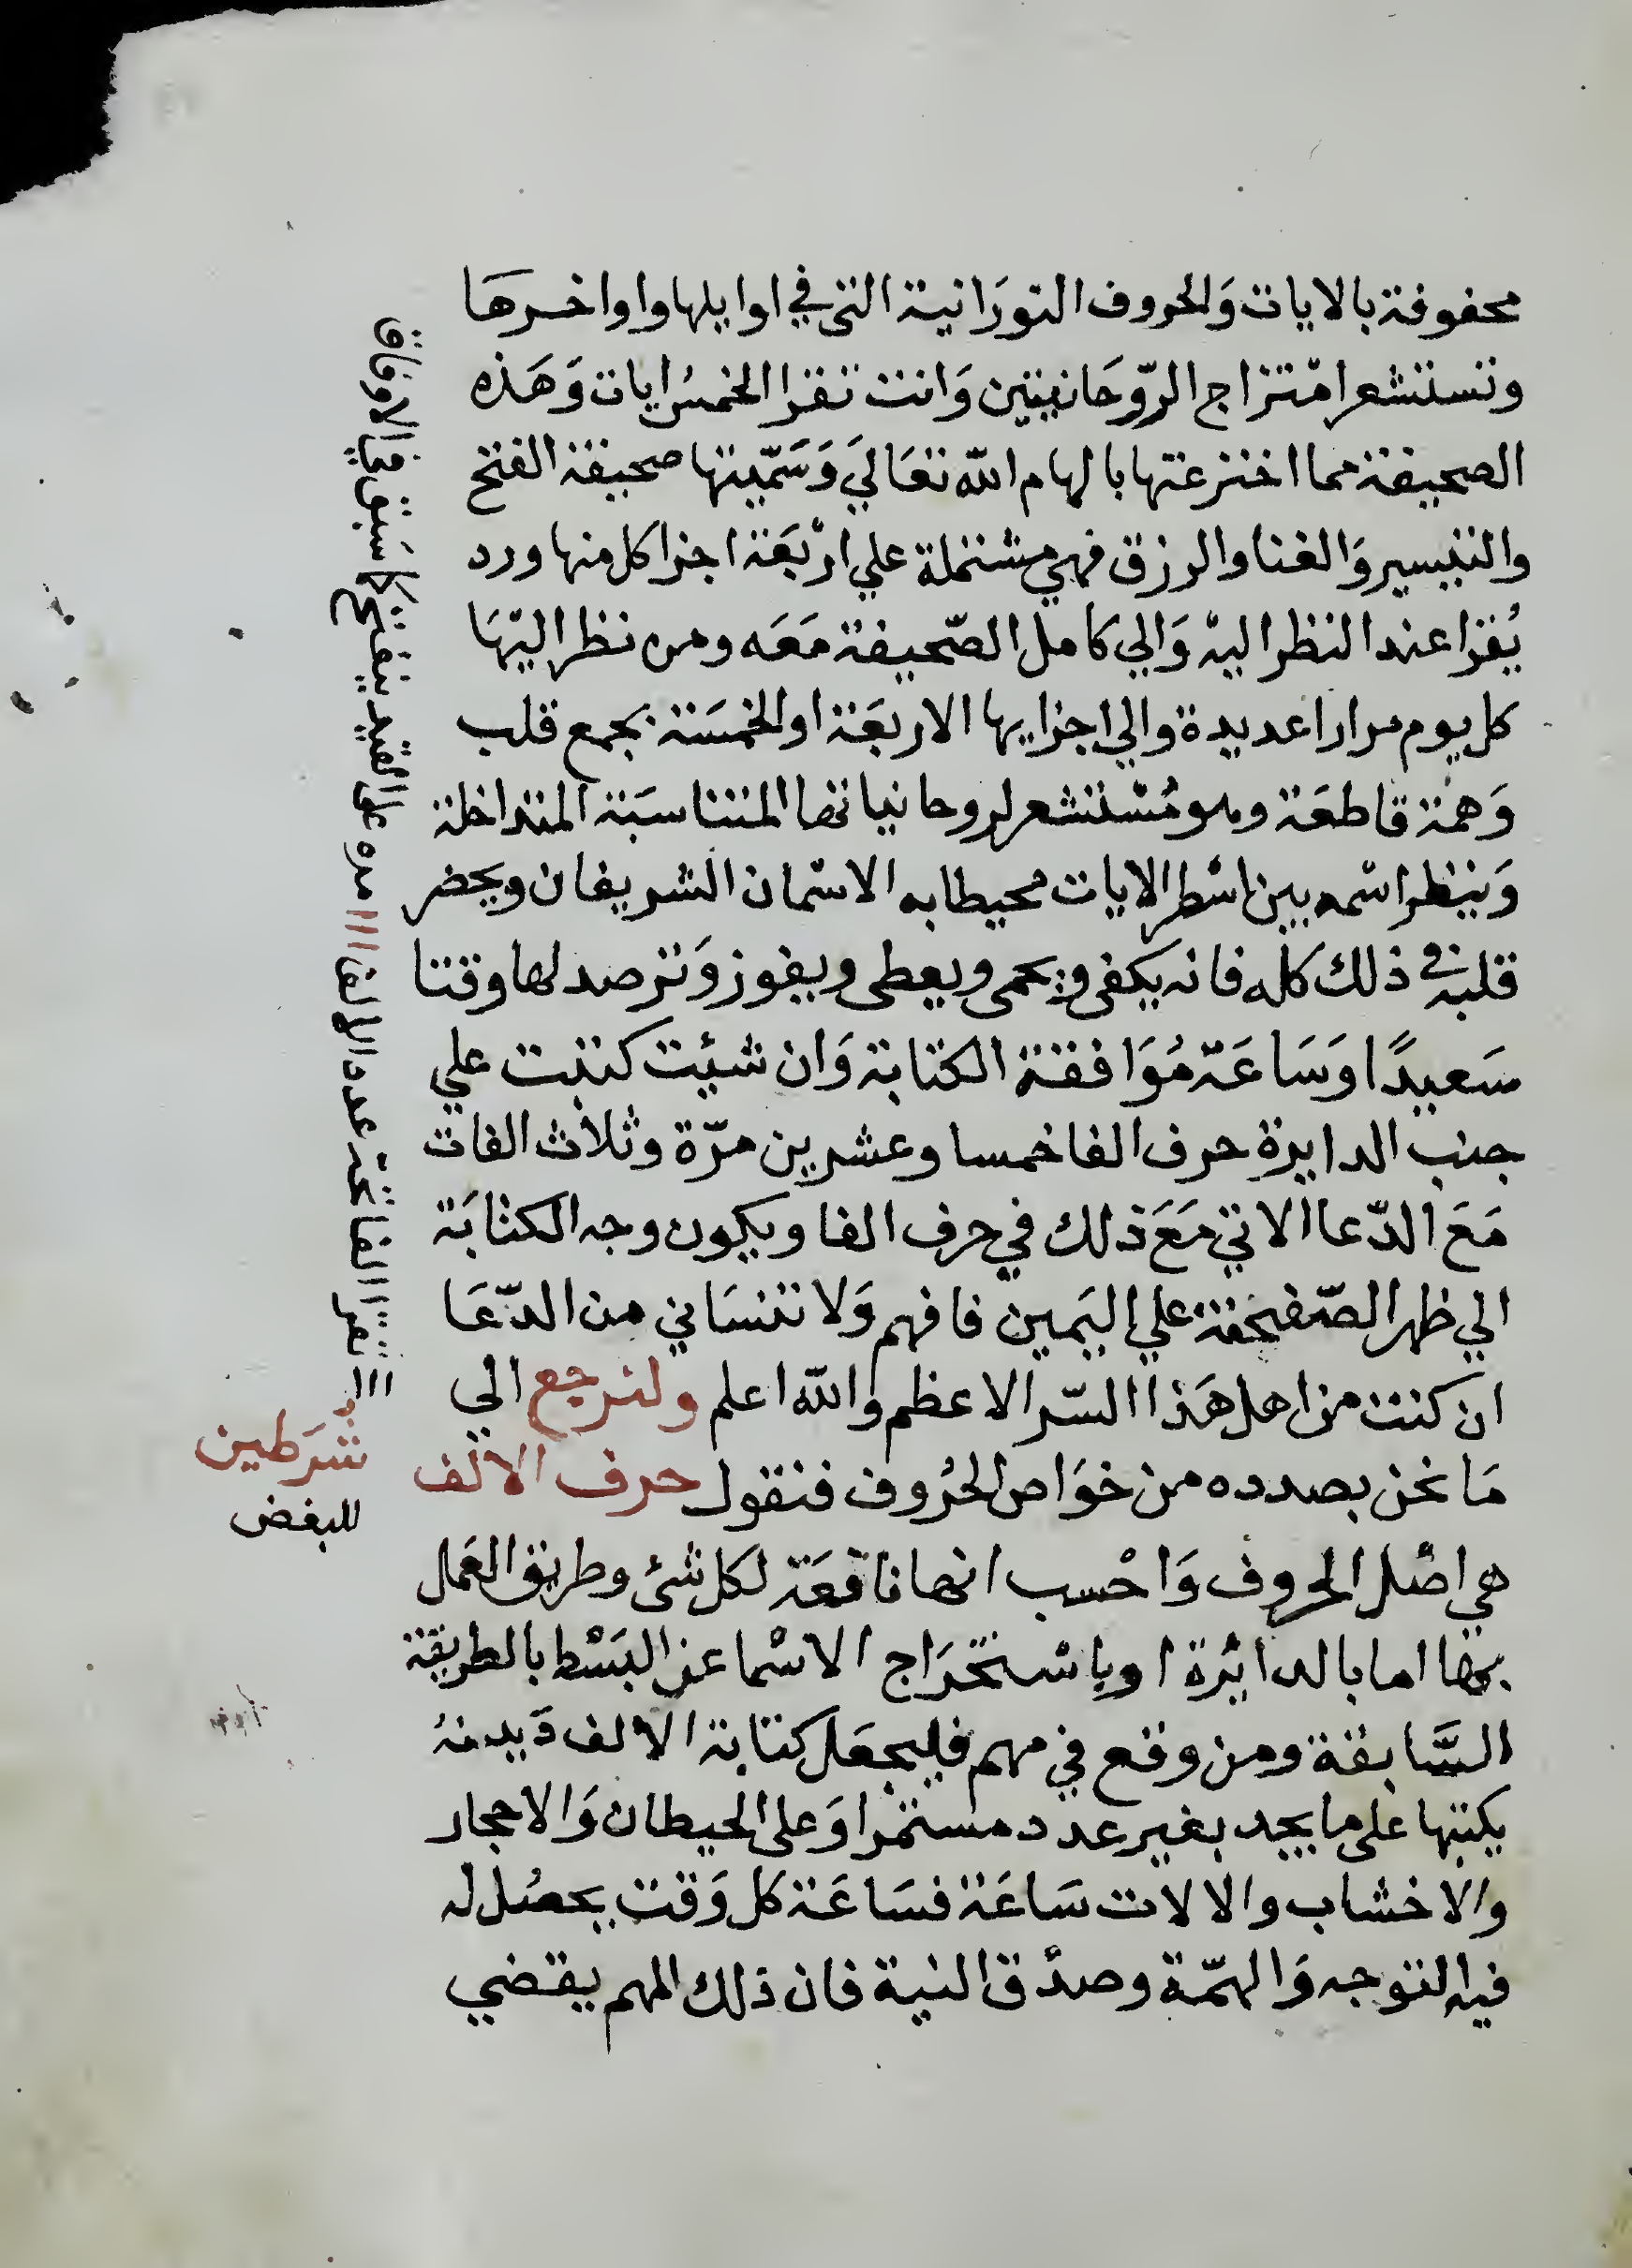 محفوفة بالايات وَالحروف النورَانية التي في اوايلها واواخرها
وتستشعر امتزاج الرّوحَانيتين وَانت تقرا الخمسُ ايات وَهَذه
الصحيفة مما اخترعتها بالهام الله تعَالَي وَسَمّيتها صحيفة الفتح
والتيسير وَالغنا والرزق فهي مشتملة علي ارْبَعَة اجزا كل منها ورد
يُقرا عند النظر اليهْ وَالي كامل الصّحيفة مَعَه ومن نظر اليْهَا
كل يوم مرارا عديدة والي اجزايها الاربَعَة او الخمسَة بجمع قلب
وَهمّة قاطعَة وهو مُسْتشعر لروحانياتها المتناسبَة المتداخلة
وَينظر اسْمه بين اسْطر الايات محيطا به الاسْمان الشريفان ويحضر
قلبه في ذلك كله فانه يكفى ويحمى ويعطى ويفوز وَترصد لها وقتا
سَعيدًا وَسَاعَة مُوَافقة الكتابة وَان شئت كتبت علي
جنب الدايرة حرف الفا خمسا وعشرين مرّة وثلاث الفات
مَعَ الدّعا الاتي مَعَ ذلك في حرف الفا ويكون وجه الكتابَة
الي ظهر الصّفيحة علي اليَمين فافهم وَلا تنسَاني من الدّعَا
ان كنت من اهل هَذا السّر الاعظم والله اعلم ولنرجع الي
مَا نحن بصدده من خوَاص الحُروف فنقول حرف الالف
هي اصْل الحروف وَاحْسب انها نافعَة لكل شئ وطريق العَمل
بها اما بالدائرة او باسْتخرَاج الاسْما عن البَسْط بالطريقة
السَّابقة ومن وقع في مهم فليجعَل كتابة الالف دَيدنهُ
يكتبها على ما يجد بغير عدد مستمرا وَعلى الحيطان وَالاحجار
والاخشاب والالات سَاعَة فسَاعَة كل وَقت يحصُل له
فيه التوجه وَالهمّة وصدْق النية فان ذلك المهم يقضي
ااا تقرا الفاتحة عدد الالفا ااا مره على القيد ينفتح كما سَبق في الاوفاق
شَرَطين
للبغض